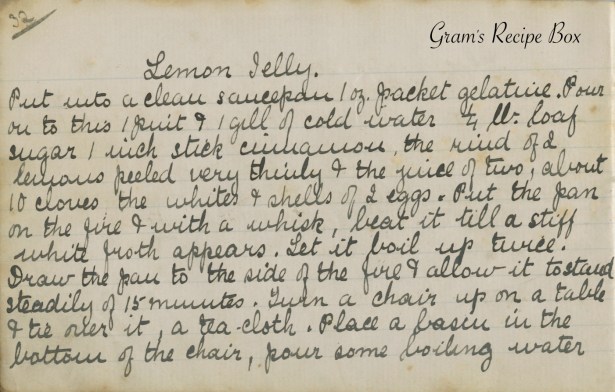 32
Gram's Recipe Box
Lemon Jelly.
Put into a clean saucepan 1 oz. packet gelatine. Pour
on to this 1 pint & 1 gill of cold water ¼ lb. loaf
sugar 1 inch stick cinnamon, the rind of 2
lemons peeled very thinly & the juice of two, about
10 cloves the whites & shells of 2 eggs. Put the pan
on the fire & with a whisk, beat it till a stiff
white froth appears. Let it boil up twice.
Draw the pan to the side of the fire & allow it to stand
steadily of 15 minutes. Turn a chair up on a table
& tie over it, a tea-cloth. Place a basin in the
bottom of the chair, pour some boiling water